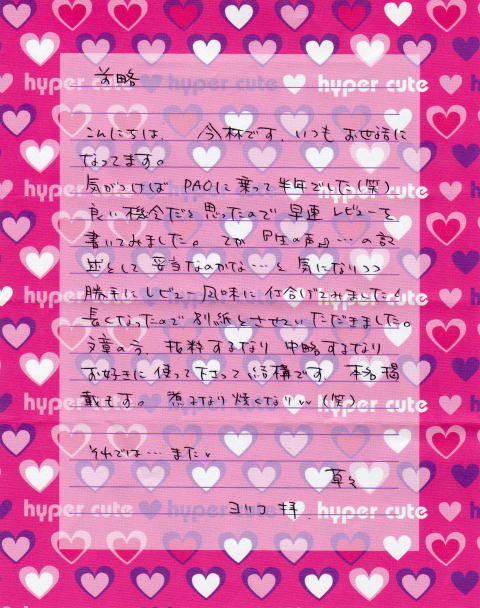 前略
こんにちは、今林です。いつもお世話に
なってます。
気がつけば PAOに乗って半年でした(笑)
良い機会だと思ったので早速レビューを
書いてみました。てか『生の声』…の記
述として妥当なのかな…と気になりつつ
勝手にレビュー風味に仕上げてみました!
長くなったので別紙とさせていただきました。
文章の方、抜粋するなり中略するなり
お好きに使って下さって結構です、本名掲
載もす。煮るなり焼くなり (笑)
それでは…また
草々
ヨリコ 拝
hyper cute